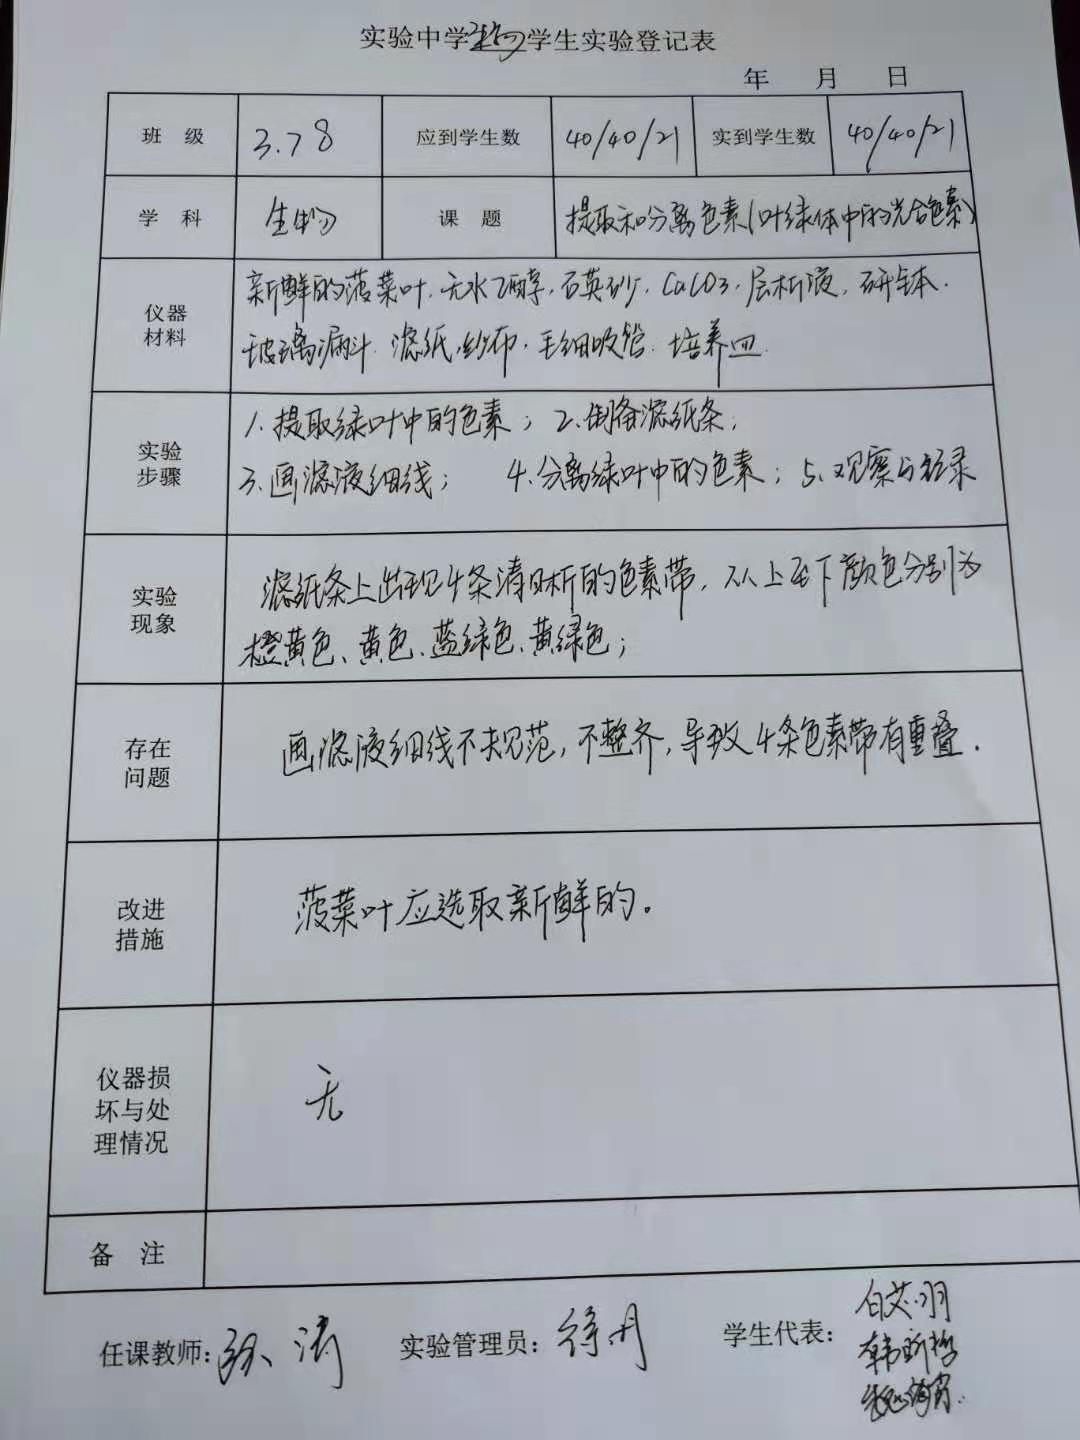 实验中学生物学生实验登记表
年 月 日
班 级 3.7 8 应到学生数 40/40/21 实到学生数 40/40/21
学 科 生物 课 题 提取和分离色素(叶绿体中的光合色素)
仪器
材料
新鲜的菠菜叶.无水乙醇.石英砂.CaCO3.层析液.研钵.
玻璃漏斗.滤纸.纱布.毛细吸管.培养皿.
实验
步骤
1.提取绿叶中的色素;2.制备滤纸条;
3.画滤液细线; 4.分离绿叶中的色素;5.观察与记录
实验
现象
滤纸条上出现4条清晰的色素带,从上至下颜色分别为
橙黄色、黄色、蓝绿色、黄绿色;
存在
问题
画滤液细线不规范,不整齐,导致4条色素带有重叠.
改进
措施
菠菜叶应选取新鲜的。
仪器损
坏与处
理情况
无
备 注
任课教师: 涛 实验管理员: 徐丹 学生代表: